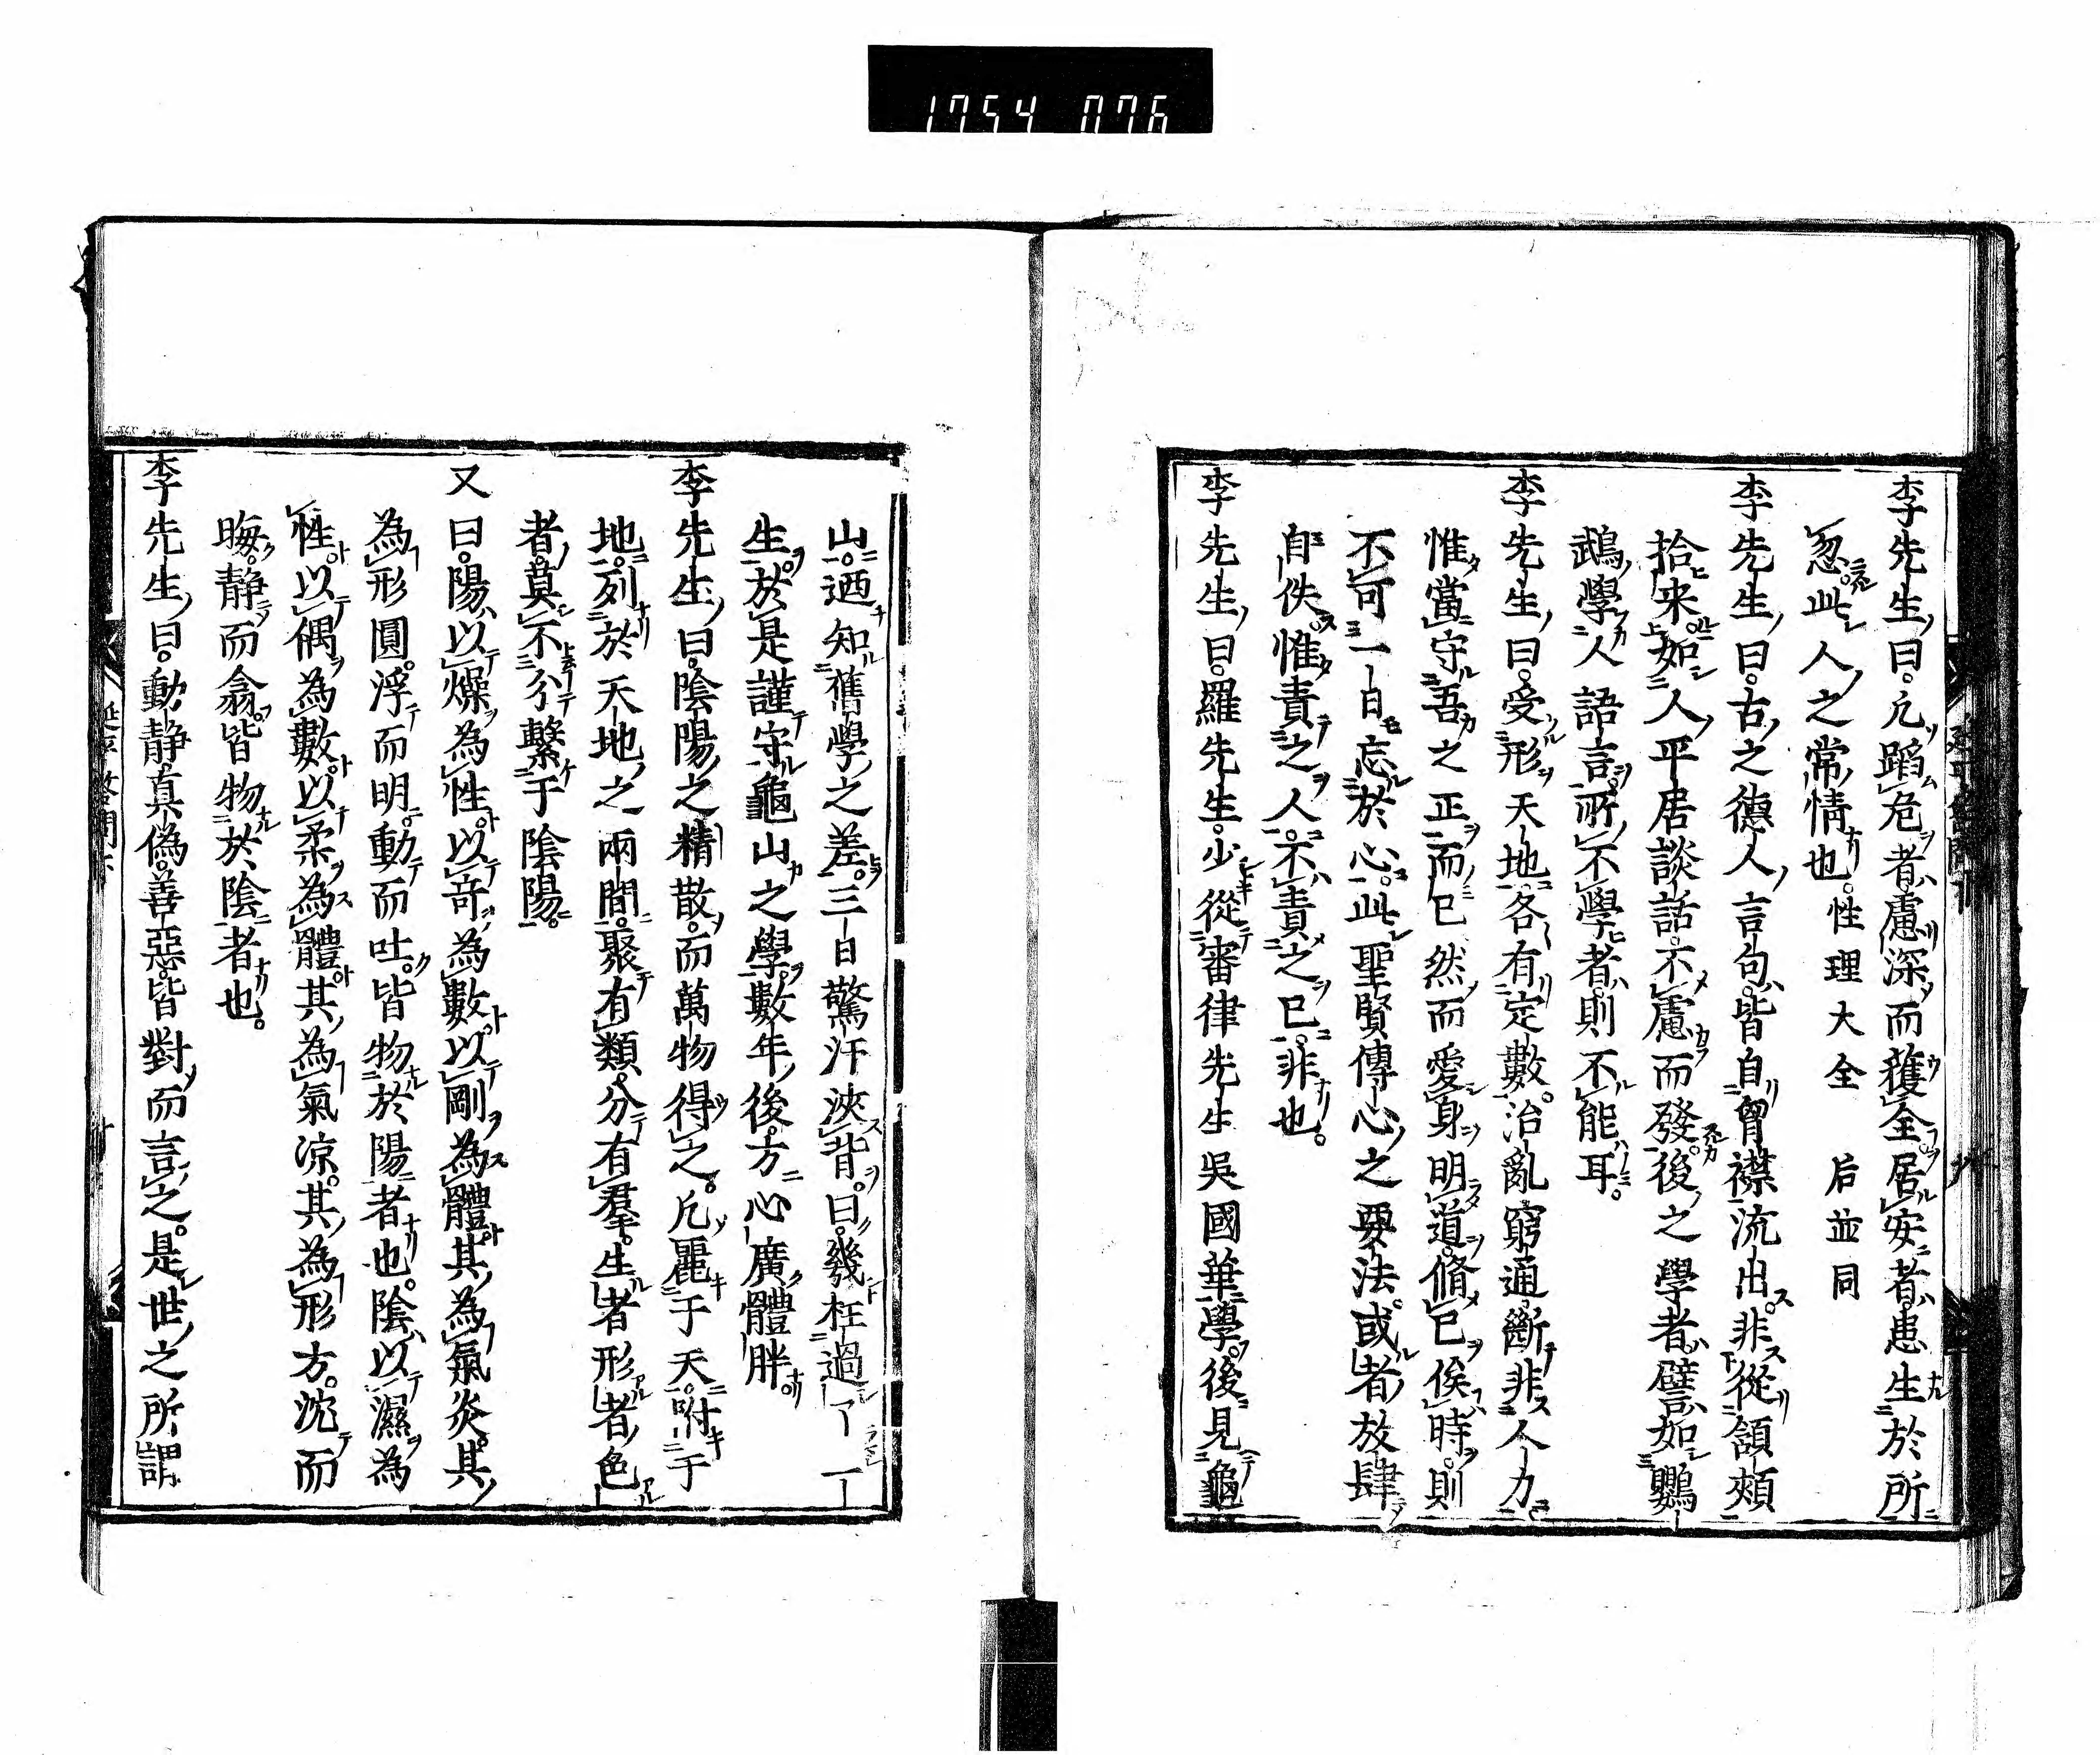 1754 076
李先生曰。凡蹈危者慮深而獲全居安者患生於所
忽。此人之常情也。性理大全 后並同
李先生曰。古之德人言句皆自胷襟流出。非從頷頰
拾来如人平居談話不慮而發。後之學者譬如鸚
鵡學人語言。所不學者則不能耳。
李先生曰。受形天地各有定數。治亂窮通斷非人力
惟當守吾之正而已然而愛身明道脩已俟時。則
不可一日忘於心。此聖賢傳心之要法。或者放肆
自佚惟責之人。不責之已。非也。
李先生曰。羅先生少從審律先生吳國華學。後見龜
山。迺知舊學之差。三日驚汗浹背。曰。幾枉過了一
生。於是謹守龜山之學。數年後方心廣體胖
李先生曰。陰陽之精散。而萬物得之。凡麗于天。附于
地。列於天地之兩間。聚有類。分有群。生者形者色
者。莫不分繫于陰陽。
又曰。陽以燥為性以奇為數以剛為體其為氣炎。其
為形圓。浮而明。動而吐。皆物於陽者也。陰以濕為
性。以偶為數。以柔為體其為氣凉。其為形方。沈而
晦。靜而翕。皆物於陰者也。
李先生曰。動静真偽。善惡皆對而言之。是世之所謂
延平答問下